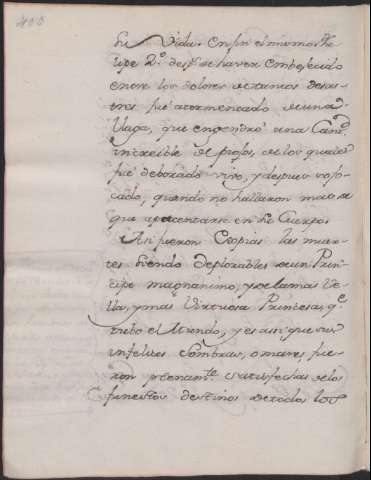 400
su Vida. En fin el mismo Phe
lipe 2.º desp.s de haver embegecido
entre los dolores de tantos desas-
tres fue atormentado de una
llaga, que engendró una Cant.d
increible de piojos, de los quales
fué deborado vivo, y despues sofo-
cado, quando no hallaron mas de
que apacentarse en su Cuerpo.
Asi fueron Expiadas las muer-
tes siendo deplorables de un Prin-
cipe magnanimo, y de la mas be-
lla, y mas Virtuosa Princesa, q.e
tubo el Mundo, y es asi que sus
infelices Sombras, o manes, fue-
ron plenam.te satisfechas de los
funestos destinos de todos los